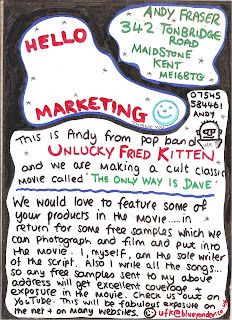 HELLO
MARKETING
ANDY FRASER
342 TONBRIDGE
ROAD
MAIDSTONE
KENT
ME168TG
07545
584461
ANDY
This is Andy from pop band
UNLUCKY FRIED KITTEN
and we are making a cult classic
movie called THE ONLY WAY IS DAVE
We would love to feature some of
your products in the movie.... in
return for some free samples which we
can photograph and film and put into
the movie. I, myself, am the sole writer
of the script. Also I write all the songs...
so any free samples sent to my above
address will get excellent coverage +
exposure in the movie. Check us out on
YouTube. This will be fabulous exposure on
the net + on many websites. ufkeblueyonder.co